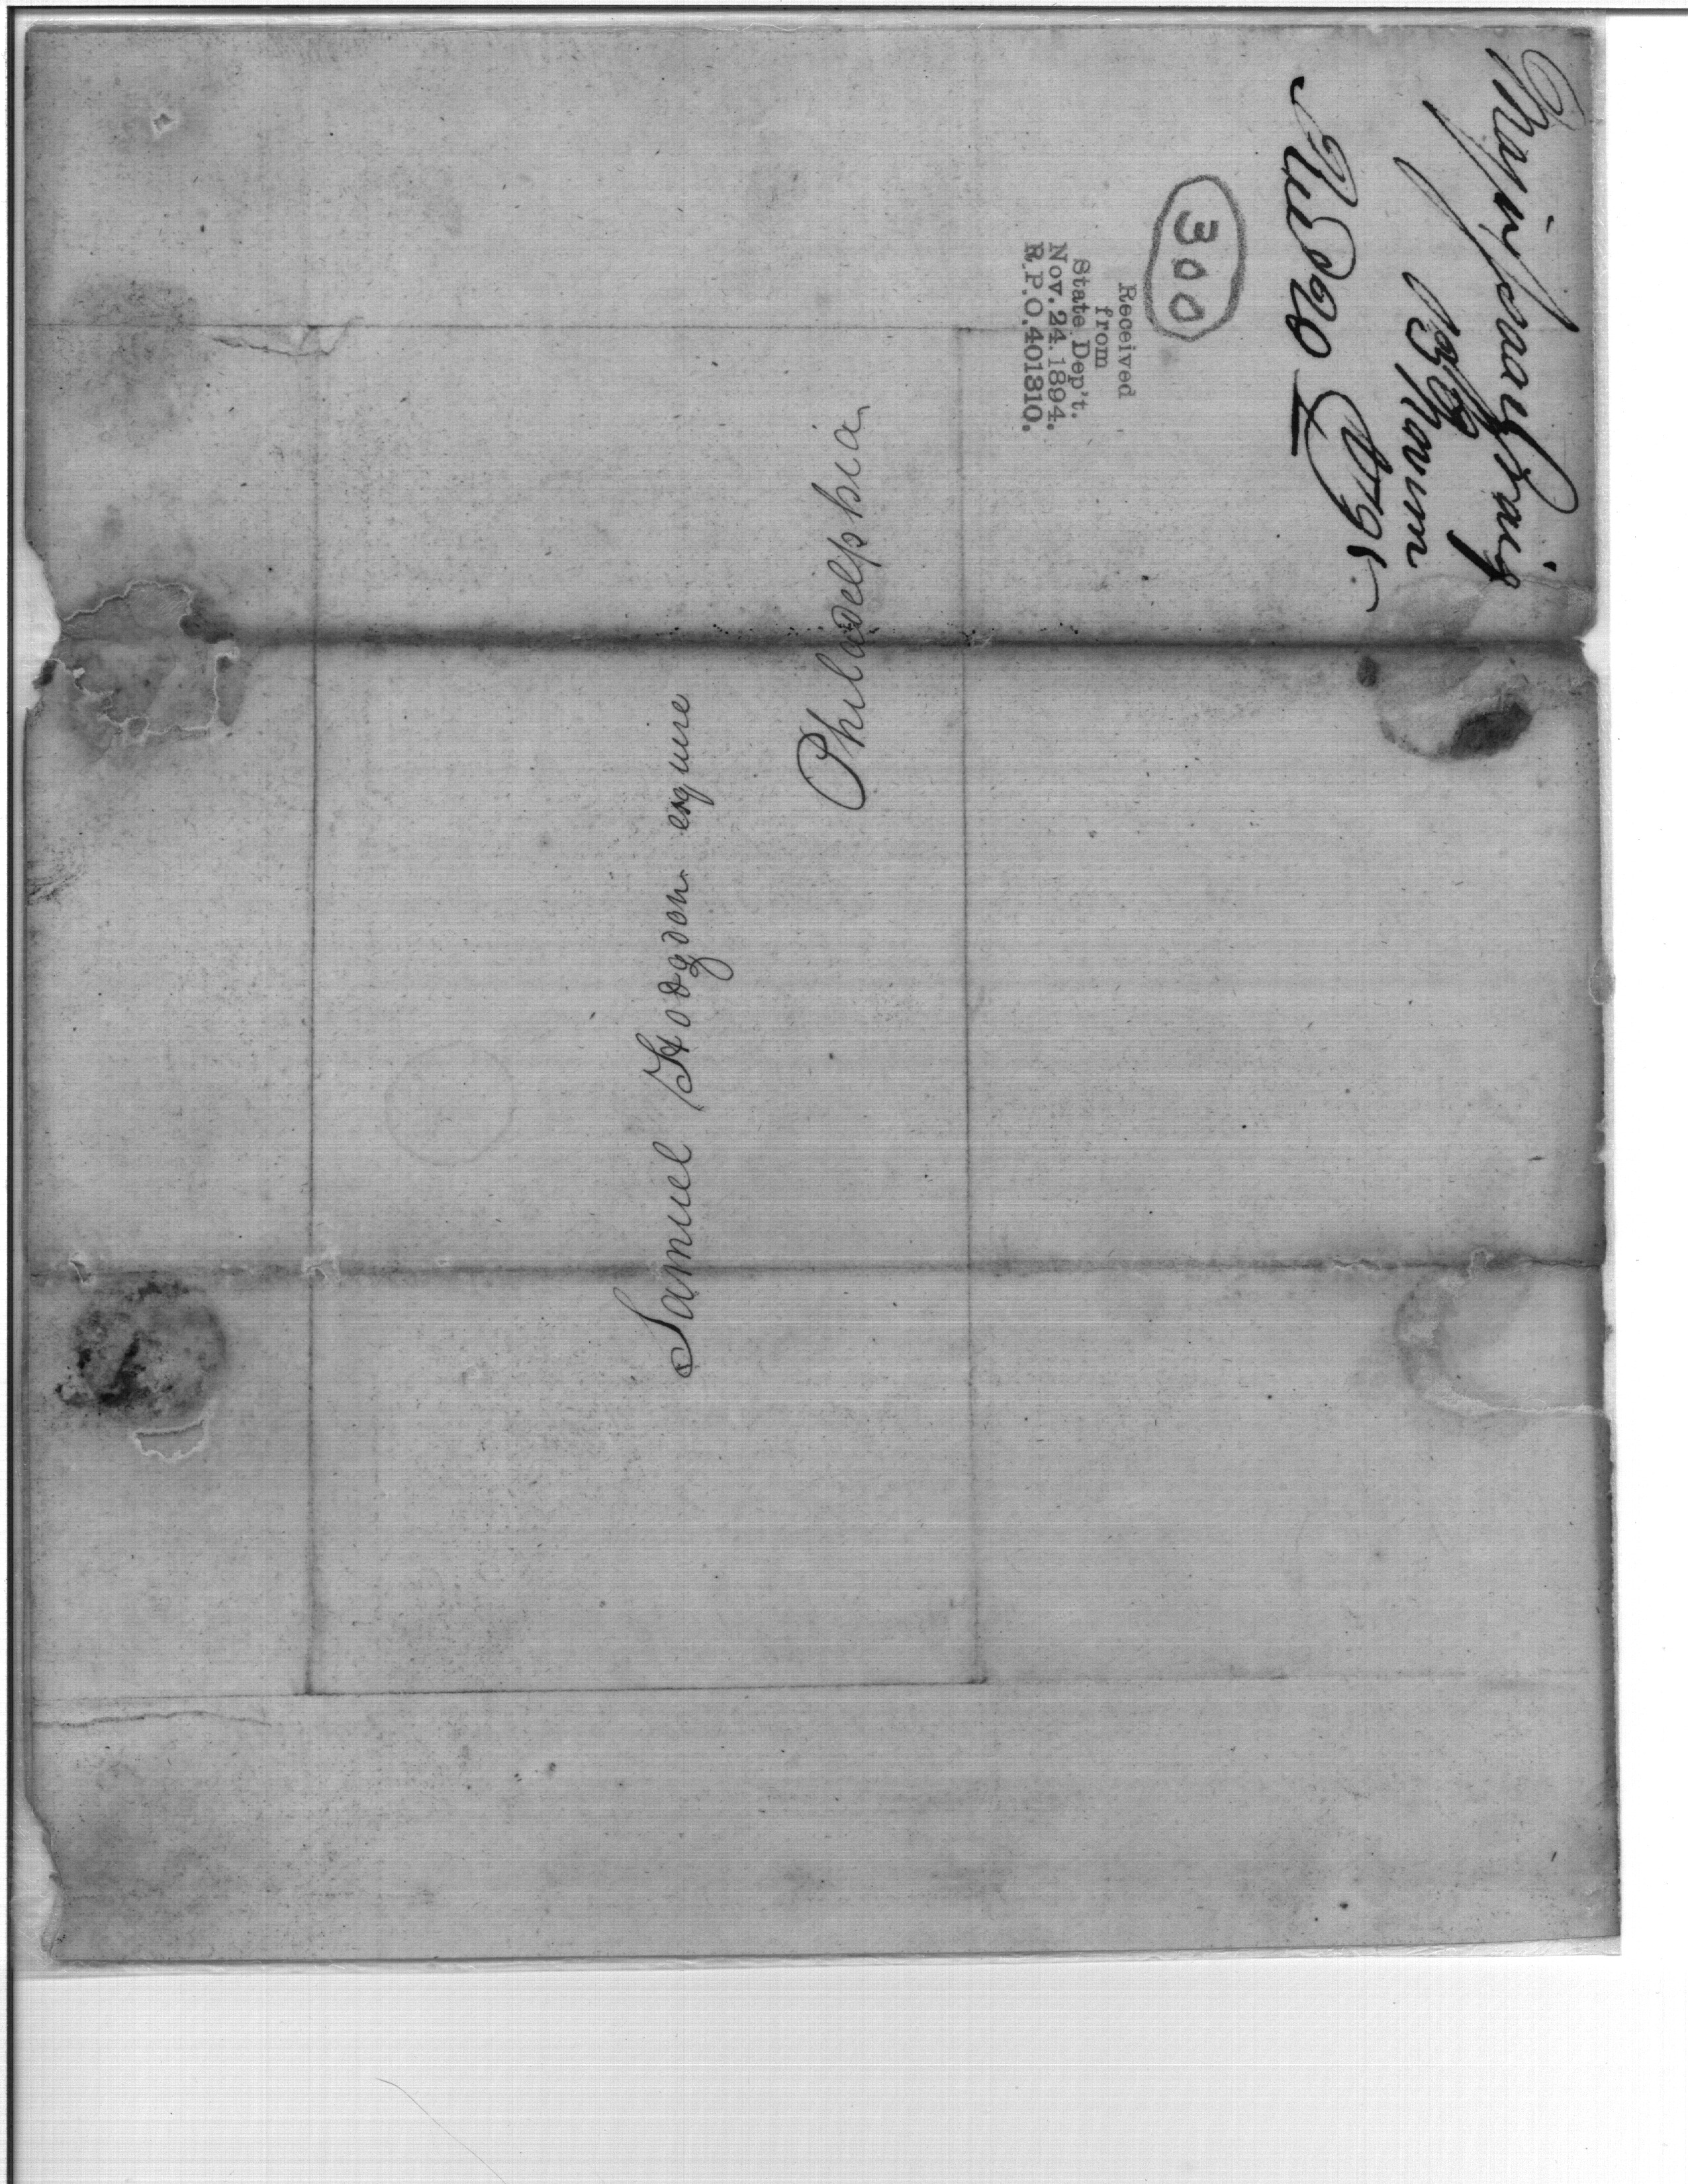 Major Isaac Craig
Novem
1795
300
Received
from
State Dep't.
Nov. 24. 1894.
R.P.O. 401310.
Samuel Hodgdon esquire
Philadelphia